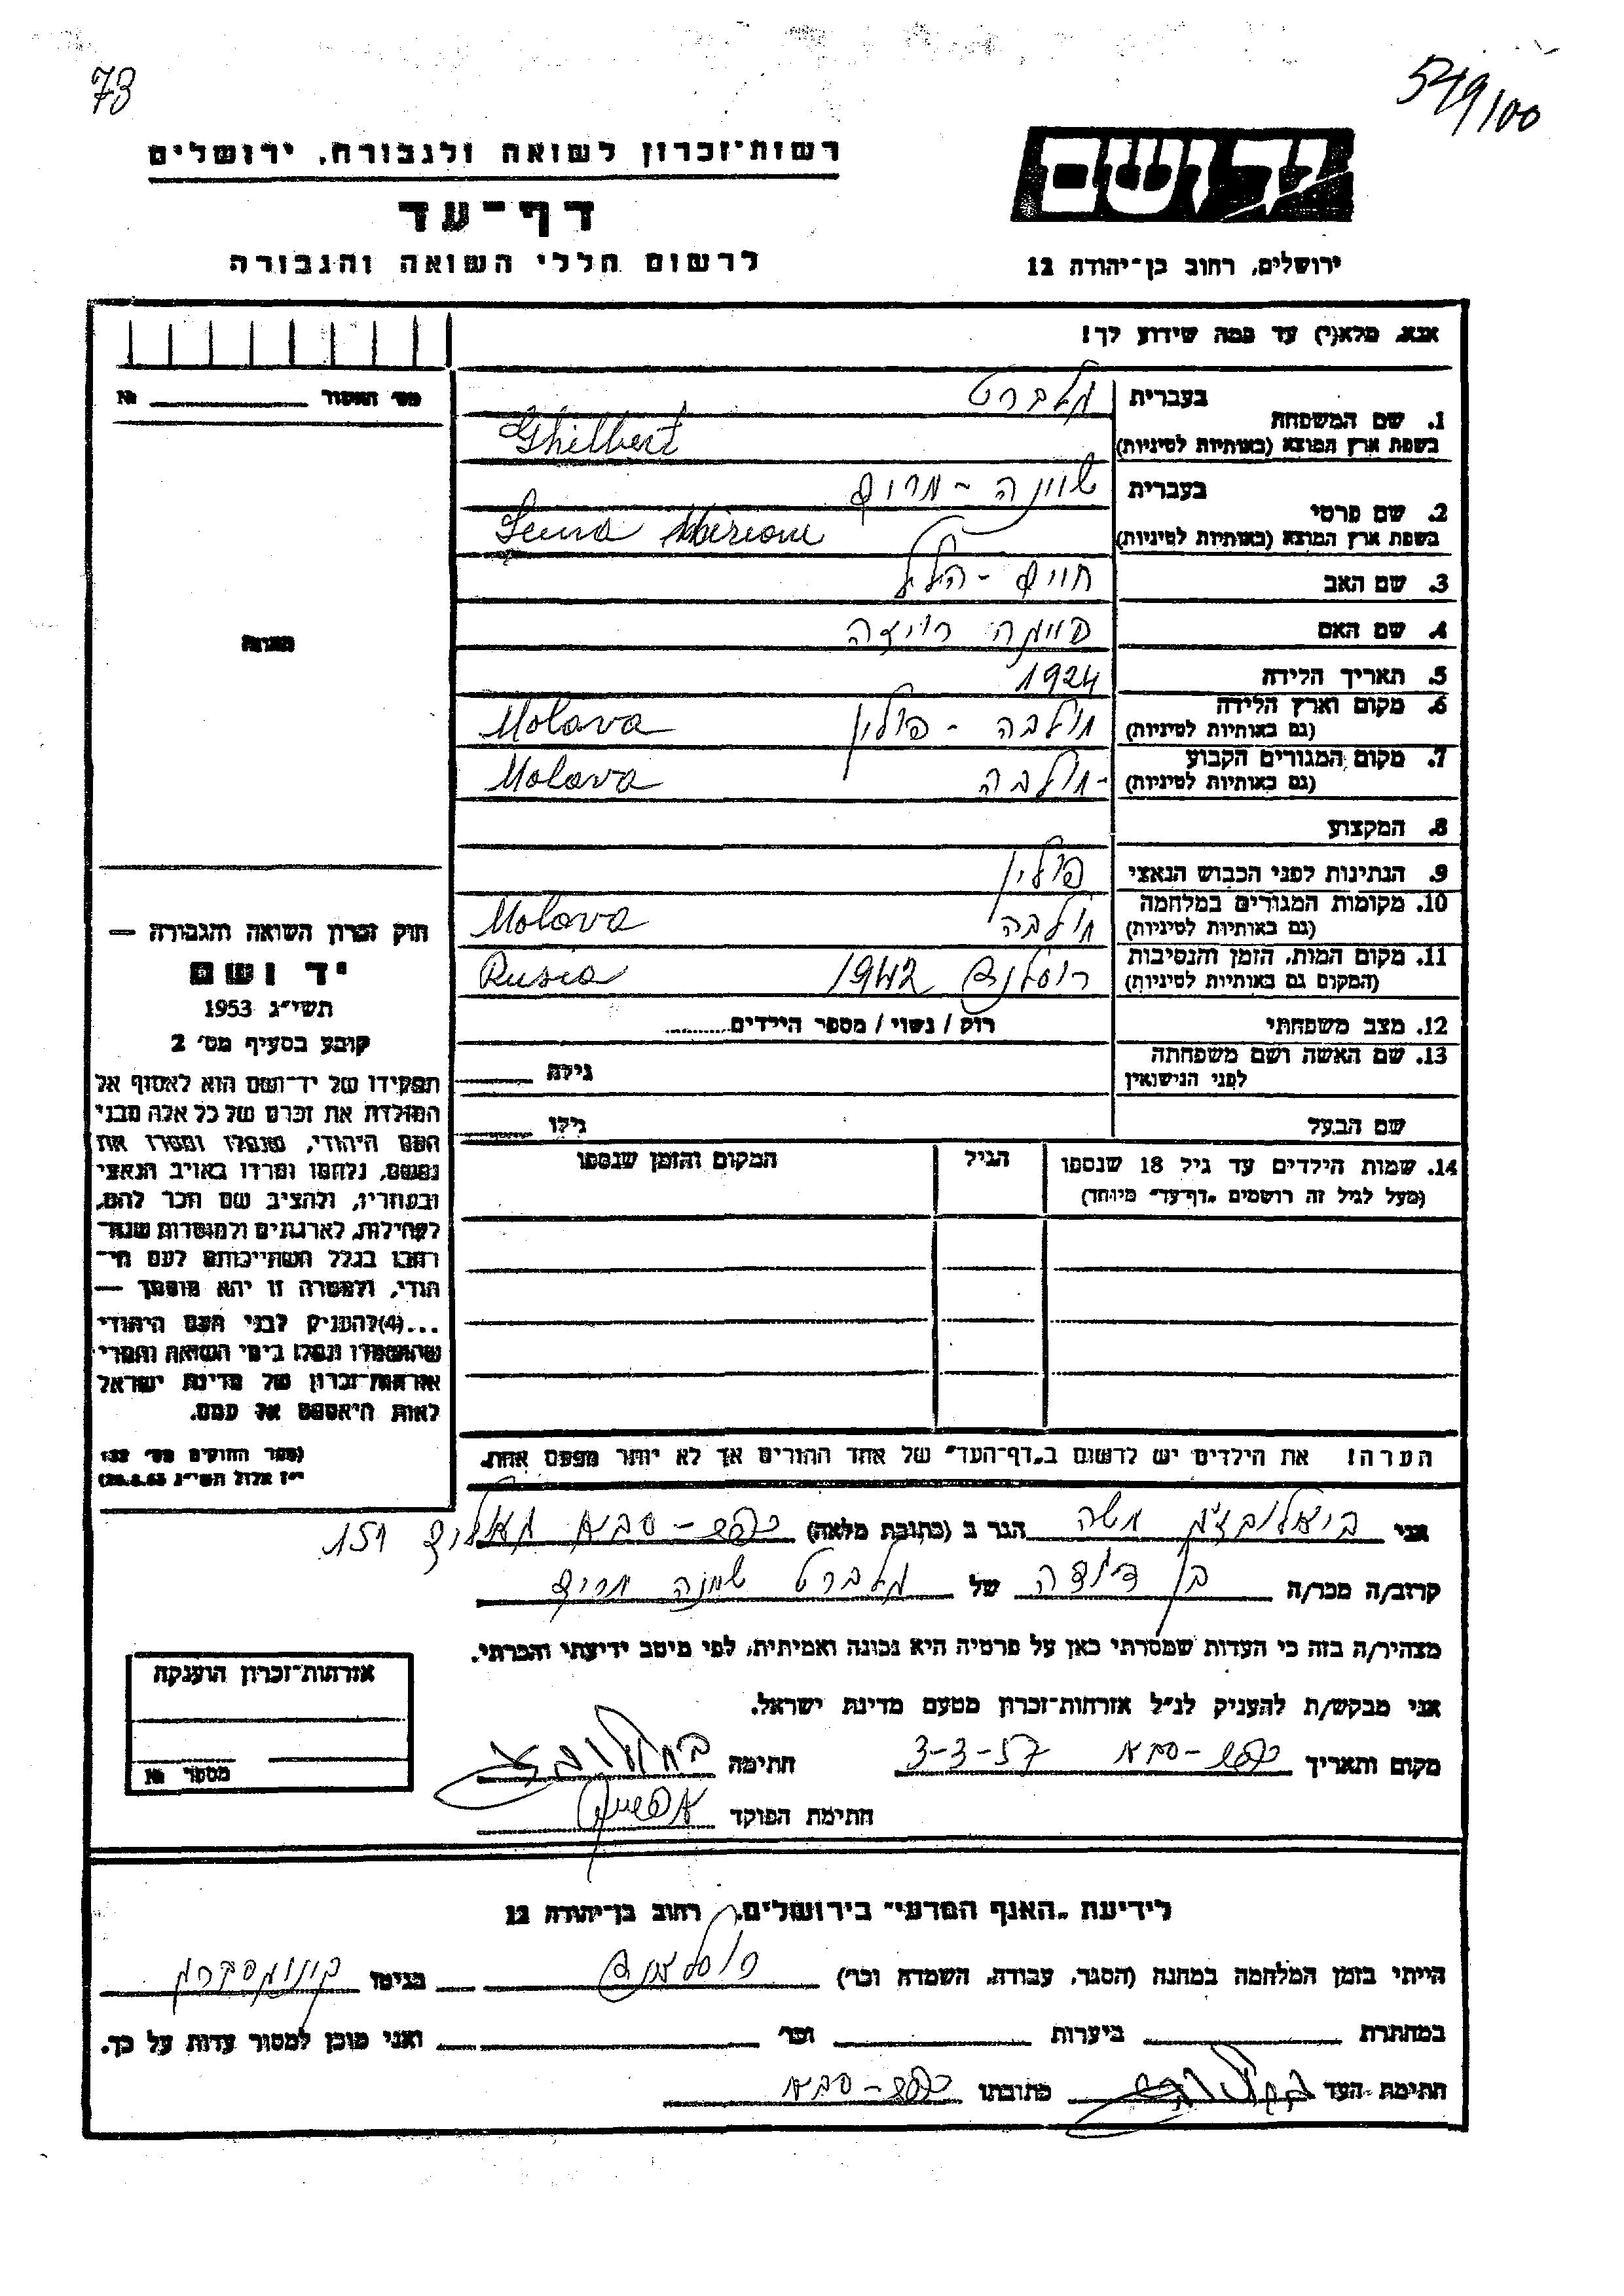 73
549/100
רשות־זכרון לשואה ולגבורה, ירושלים
דף־עד
לרשום חללי השואה והגבורה
יד ושם
ירושלים, רחוב בן־יהודה 12
אנא, מלא(י) עד כמה שידוע לך!
מס׳ האסור № 
1. שם המשפחה
בעברית גלברט
בשפת ארץ המוצא (באותיות לטיניות) Ghilbert
2. שם פרטי
בעברית שיינה - מרים
בשפת ארץ המוצא (באותיות לטיניות)
3. שם האב חיים - הלל
4. שם האם סימה רייצה
5. תאריך הלידה 1924
6. מקום וארץ הלידה מולבה - פולין Molava
(גם באותיות לטיניות)
7. מקום המגורים הקבוע מולבה Molava
(גם באותיות לטיניות)
8. המקצוע
9. הנתינות לפני הכבוש הנאצי פולין
10. מקומות המגורים במלחמה מולבה Molava
(גם באותיות לטיניות)
11. מקום המות, הזמן והנסיבות רוסלנד 1942 Rusia
(המקום גם באותיות לטיניות)
12. מצב משפחתי רוק / נשוי / מספר הילדים
13. שם האשה ושם משפחתה גילה
לפני הנישואין
שם הבעל גילו
14. שמות הילדים עד גיל 18 שנספו הגיל המקום והזמן שנספו
(מעל לגיל זה רושמים „דף־עד״ מיוחד)
הערה! את הילדים יש לרשום ב„דף־העד״ של אחד ההורים אך לא יותר מפעם אחת.
תמונה
חוק זכרון השואה והגבורה —
יד ושם
תשי״ג 1953
קובע בסעיף מס׳ 2
תפקידו של יד־ושם הוא לאסוף אל
המולדת את זכרם של כל אלה מבני
העם היהודי, שנפלו ומסרו את
נפשם, נלחמו ומרדו באויב הנאצי
ובעוזריו, ולהציב שם וזכר להם,
לקהילות, לארגונים ולמוסדות שנח־
רבו בגלל השתייכותם לעם הי־
הודי, ולמטרה זו יהא מוסמך —
...(4)להעניק לבני העם היהודי
שהושמדו ונפלו בימי השואה והמרי
אזרחות־זכרון של מדינת ישראל
לאות היאספם אל עמם.
(ספר החוקים מס׳ 132
י״ז אלול תשי״ג 28.8.53)
אני משה הגר ב (כתובת מלאה) כפר-סבא 151
קרוב/ה מכר/ה בן דודה של גלברט שיינה מרים
מצהיר/ה בזה כי העדות שמסרתי כאן על פרטיה היא נכונה ואמיתית, לפי מיטב ידיעתי והכרתי.
אני מבקש/ת להעניק לנ״ל אזרחות־זכרון מטעם מדינת ישראל.
מקום ותאריך כפר-סבא 3-3-57 חתימה
חתימת הפוקד
אזרחות־זכרון הוענקה
מספר №
לידיעת „האגף המדעי״ בירושלים, רחוב בן־יהודה 12
הייתי בזמן המלחמה במחנה (הסגר, עבודה, השמדה וכו׳) רוסלנד בגיטו
במחתרת ביערות וכו׳ ואני מוכן למסור עדות על כך.
חתימת העד כתובתו כפר-סבא